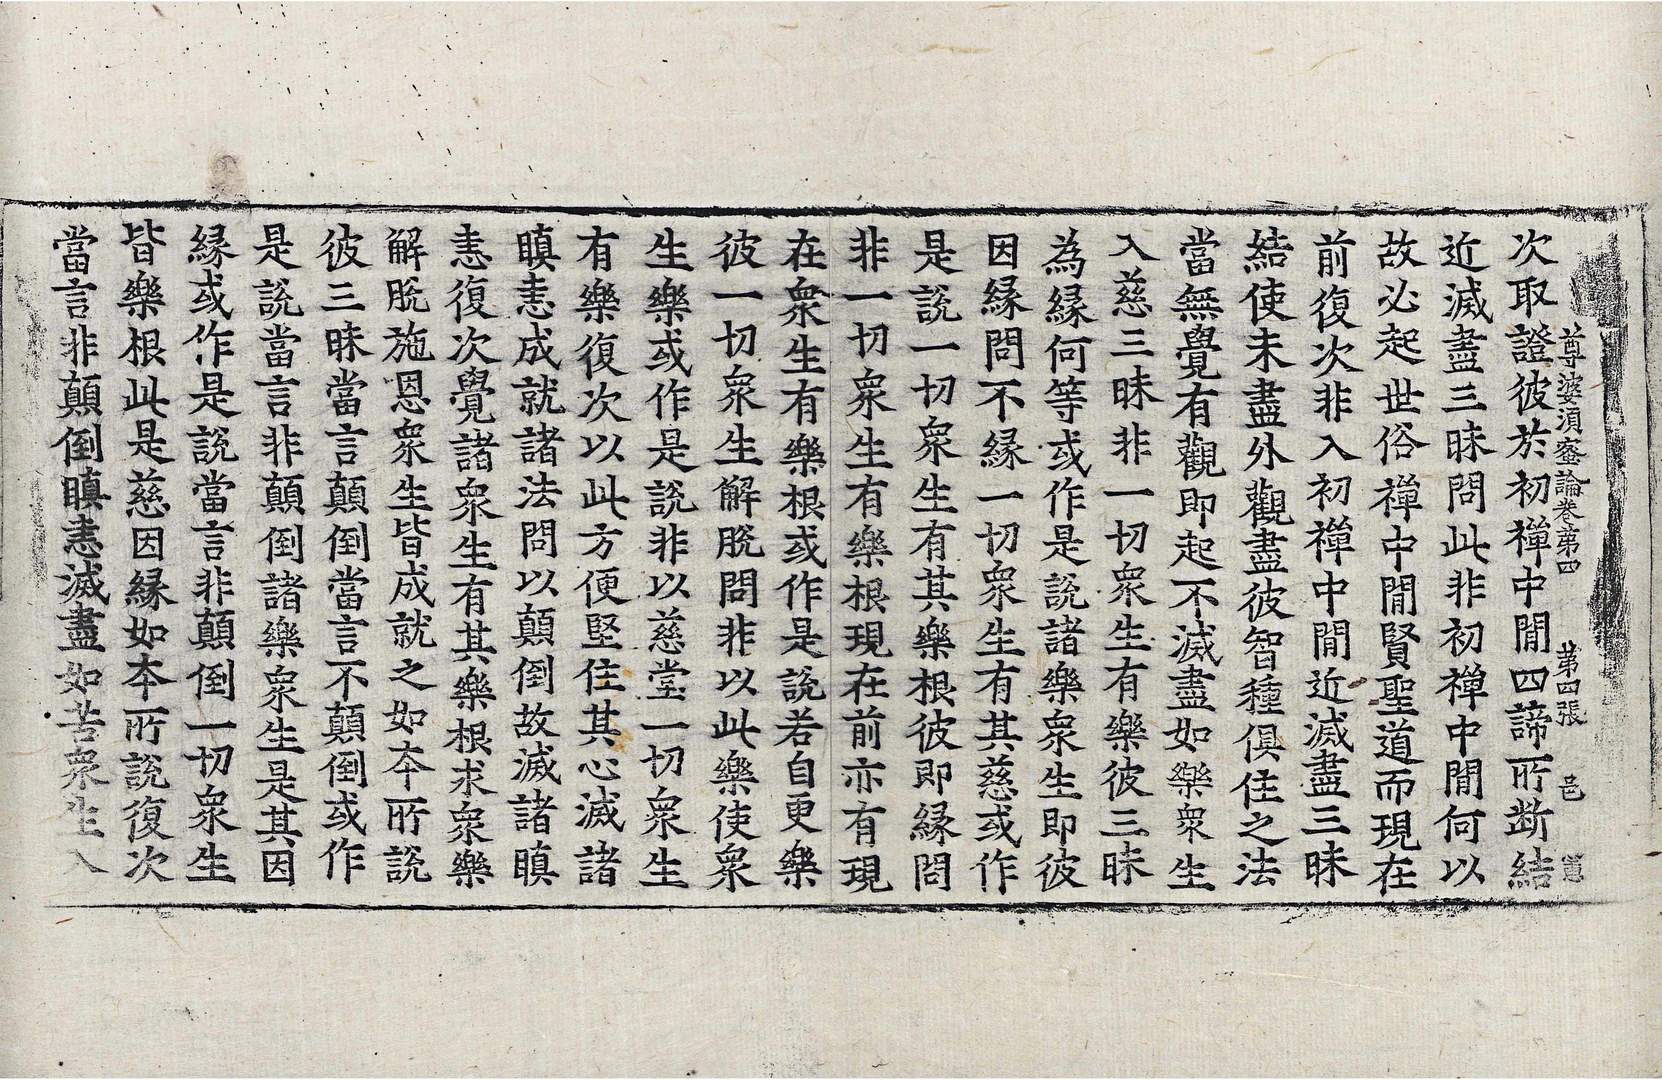 尊婆湏蜜論卷第四 第四張 邑
次取證彼於初禪中閒四諦所断結
近滅盡三昧問此非初禪中閒何以
故必起世俗禪中閒賢聖道而現在
前復次非入初禪中閒近滅盡三昧
結使未盡外觀盡彼智種俱住之法
當無覺有觀即起不滅盡如樂衆生
入慈三昧非一切衆生有樂彼三昧
為緣何等或作是說諸樂衆生即彼
因緣問不緣一切衆生有其慈或作
是說一切衆生有其樂根彼即緣問
非一切衆生有樂根現在前亦有現
在衆生有樂根或作是說若自更樂
彼一切衆生解脫問非以此樂使衆
生樂或作是說非以慈堂一切衆生
有樂復次以此方便堅住其心滅諸
瞋恚成就諸法問以顛倒故滅諸瞋
恚復次覺諸衆生有其樂根求衆樂
解脫施恩衆生皆成就之如本所說
彼三昧當言顛倒當言不顛倒或作
是說當言非顛倒諸樂衆生是其因
緣或作是說當言非顛倒一切衆生
皆樂根此是慈因緣如本所說復次
當言非顛倒瞋恚滅盡如苦衆生入